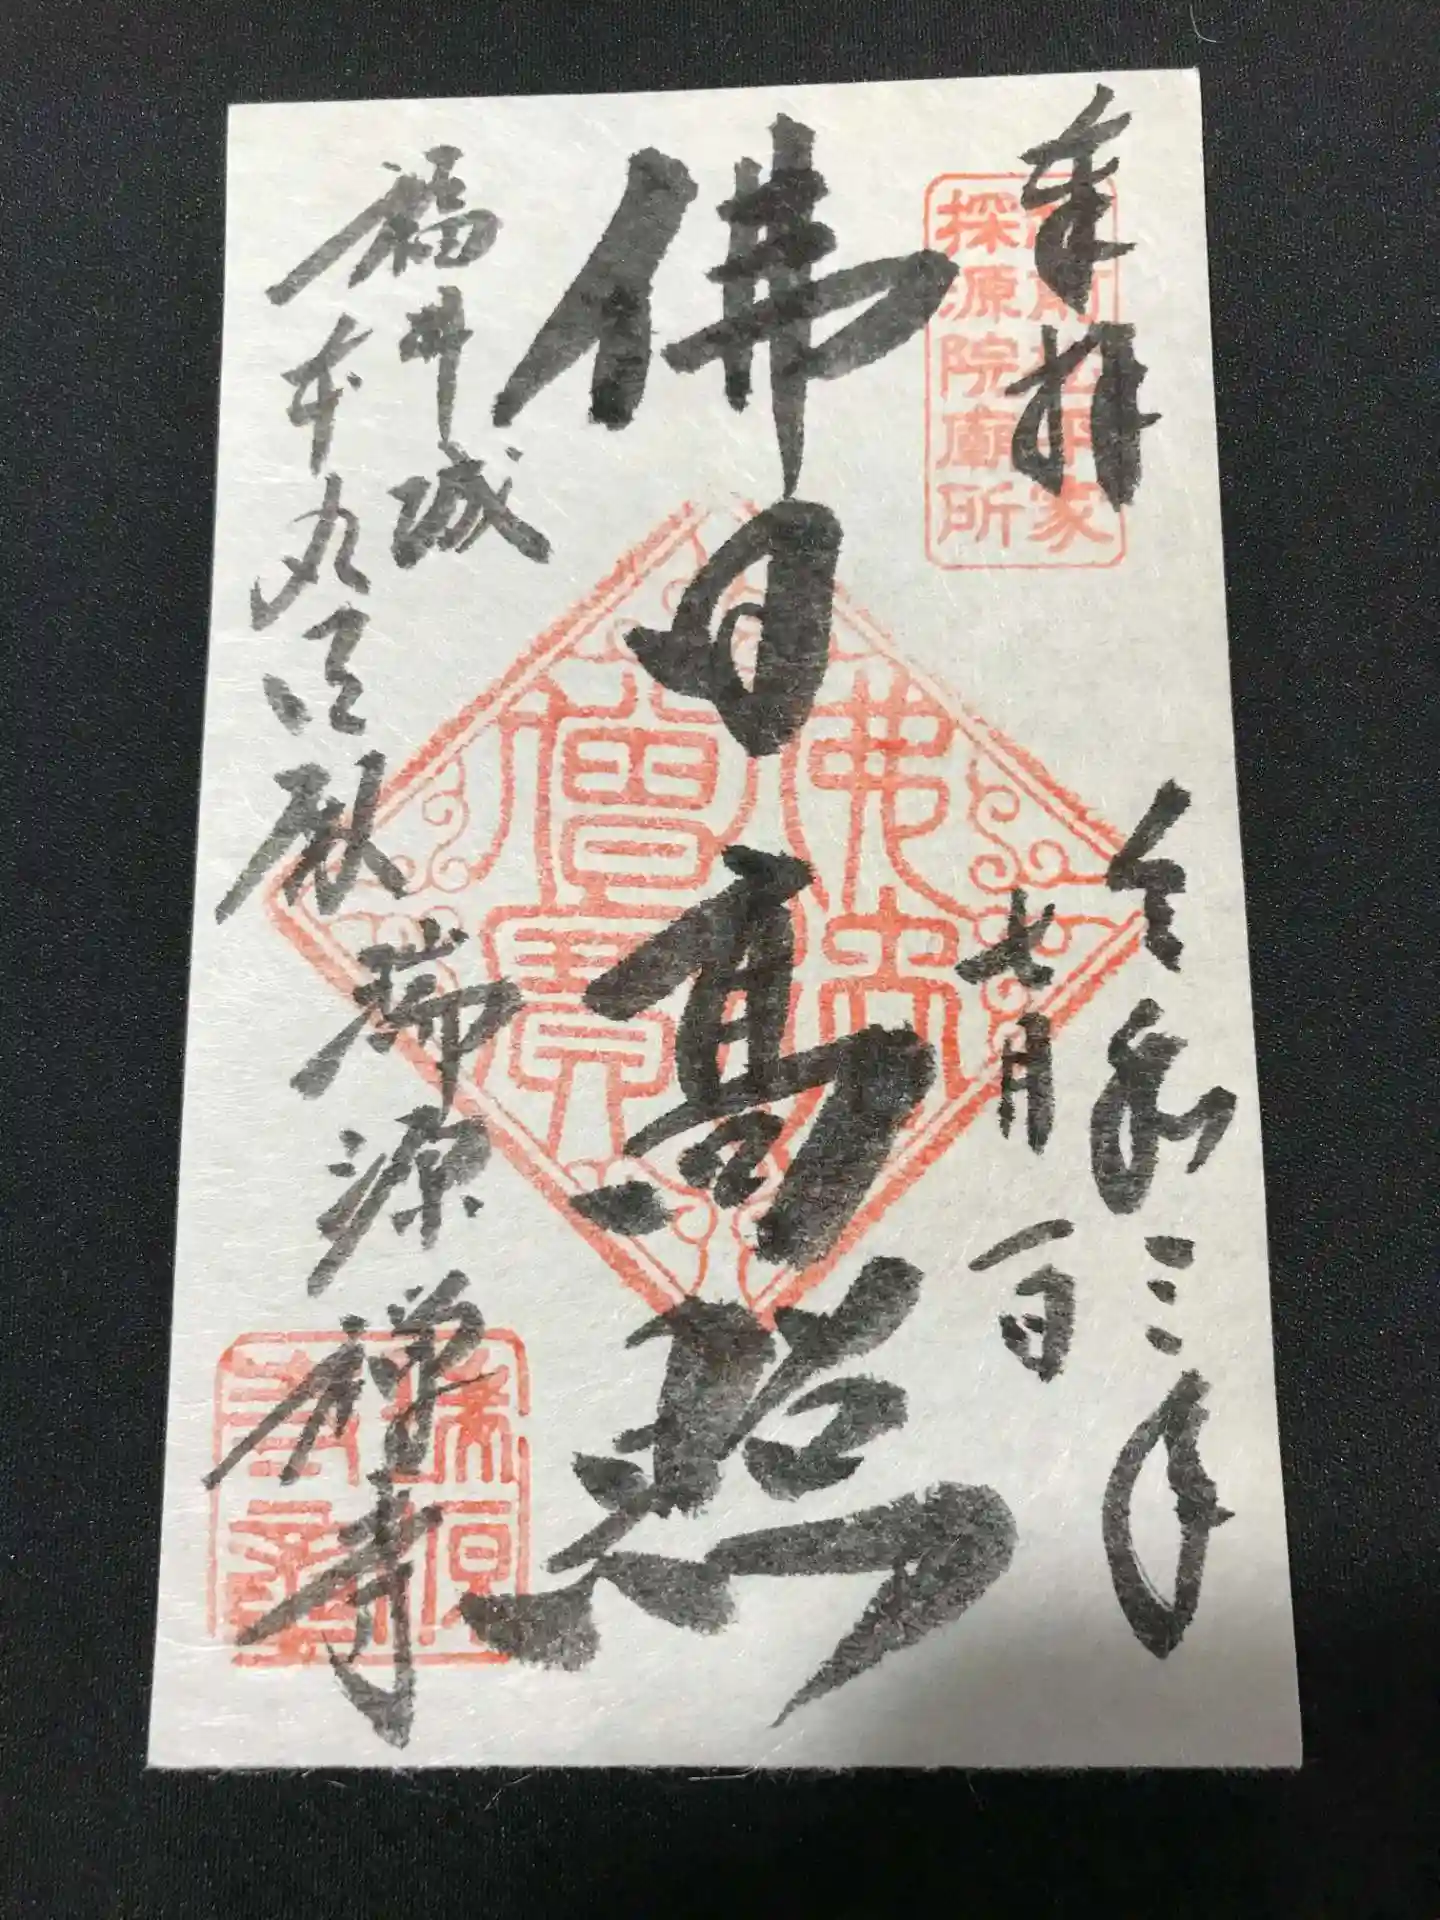 奉拝
越前松平家
探源院廟所
令和三年
七月一日
佛日高照
佛法
僧寶
福井城
本丸御殿
瑞源禅寺
瑞源
寺